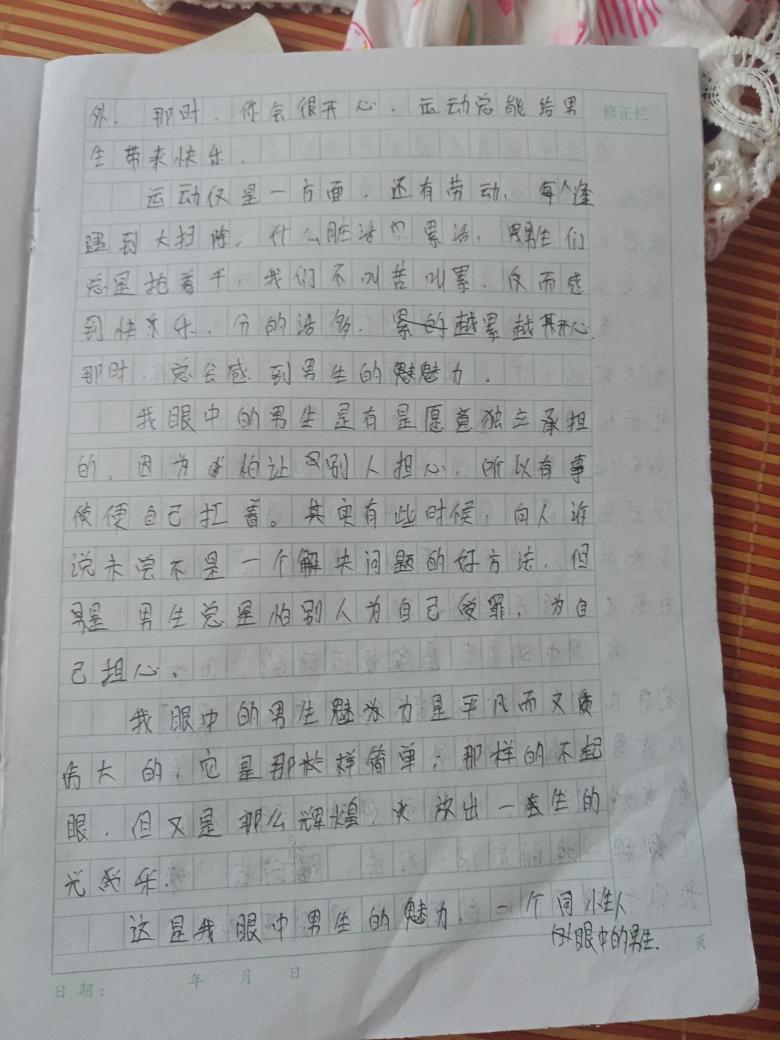 外. 那时. 你会很开心. 运动总能给男
修正栏
生带来快乐.
运动仅是一方面. 还有劳动. 每逢
遇到大扫除. 什么脏活累活. 男生们
总是抢着干. 我们不叫苦叫累. 反而感
到快乐. 分的活多. 越累越开心.
那时. 总会感到男生的魅力.
我眼中的男生是有是愿意独立承担
的. 因为怕让别人担心. 所以有事
便自己扛着。其实有些时候. 向人诉
说未尝不是一个解决问题的好方法. 但
是男生总是怕别人为自己受罪. 为自
己担心.
我眼中的男生魅力是平凡而又
伟大的. 它是那样简单; 那样的不起
眼. 但又是那么辉煌. 放出一生的
光
乐.
这是我眼中男生的魅力. 一个同性人
眼中的男生.
日期: 年 月 日
页